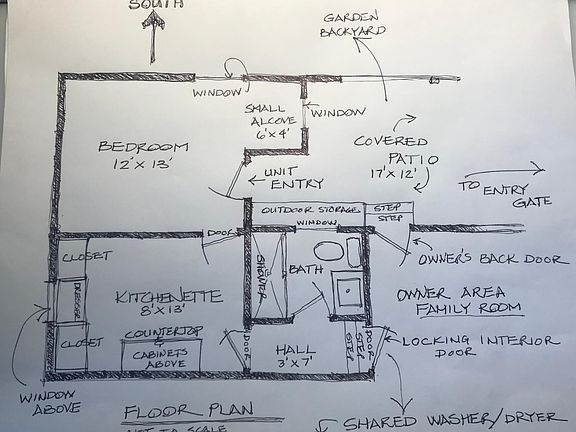 SOUTH
GARDEN
BACKYARD
WINDOW
SMALL
ALCOVE
6'X4'
WINDOW
BEDROOM
12'X 13'
COVERED
PATIO
17'X12'
UNIT
ENTRY
TO ENTRY
GATE
OUTDOOR STORAGE
STEP
STEP
WINDOW
DOOR
CLOSET
SHOWER
BATH
OWNER'S BACK DOOR
DRESSER
KITCHENETTE
8'X13'
OWNER AREA
FAMILY ROOM
COUNTERTOP
CABINETS
ABOVE
CLOSET
DOOR
HALL
3'X7'
STEP
STEP
DOOR
LOCKING INTERIOR
DOOR
WINDOW
ABOVE
FLOOR PLAN
NOT TO SCALE
SHARED WASHER/DRYER